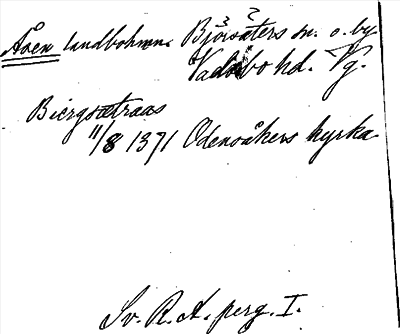 Åsen landbohmn. Björsäters sn. o. by
Vadsbo hd. Vg.
Biergsætraas
11/8 1371 Odensåkers kyrka
Sv. R. A. perg. I.